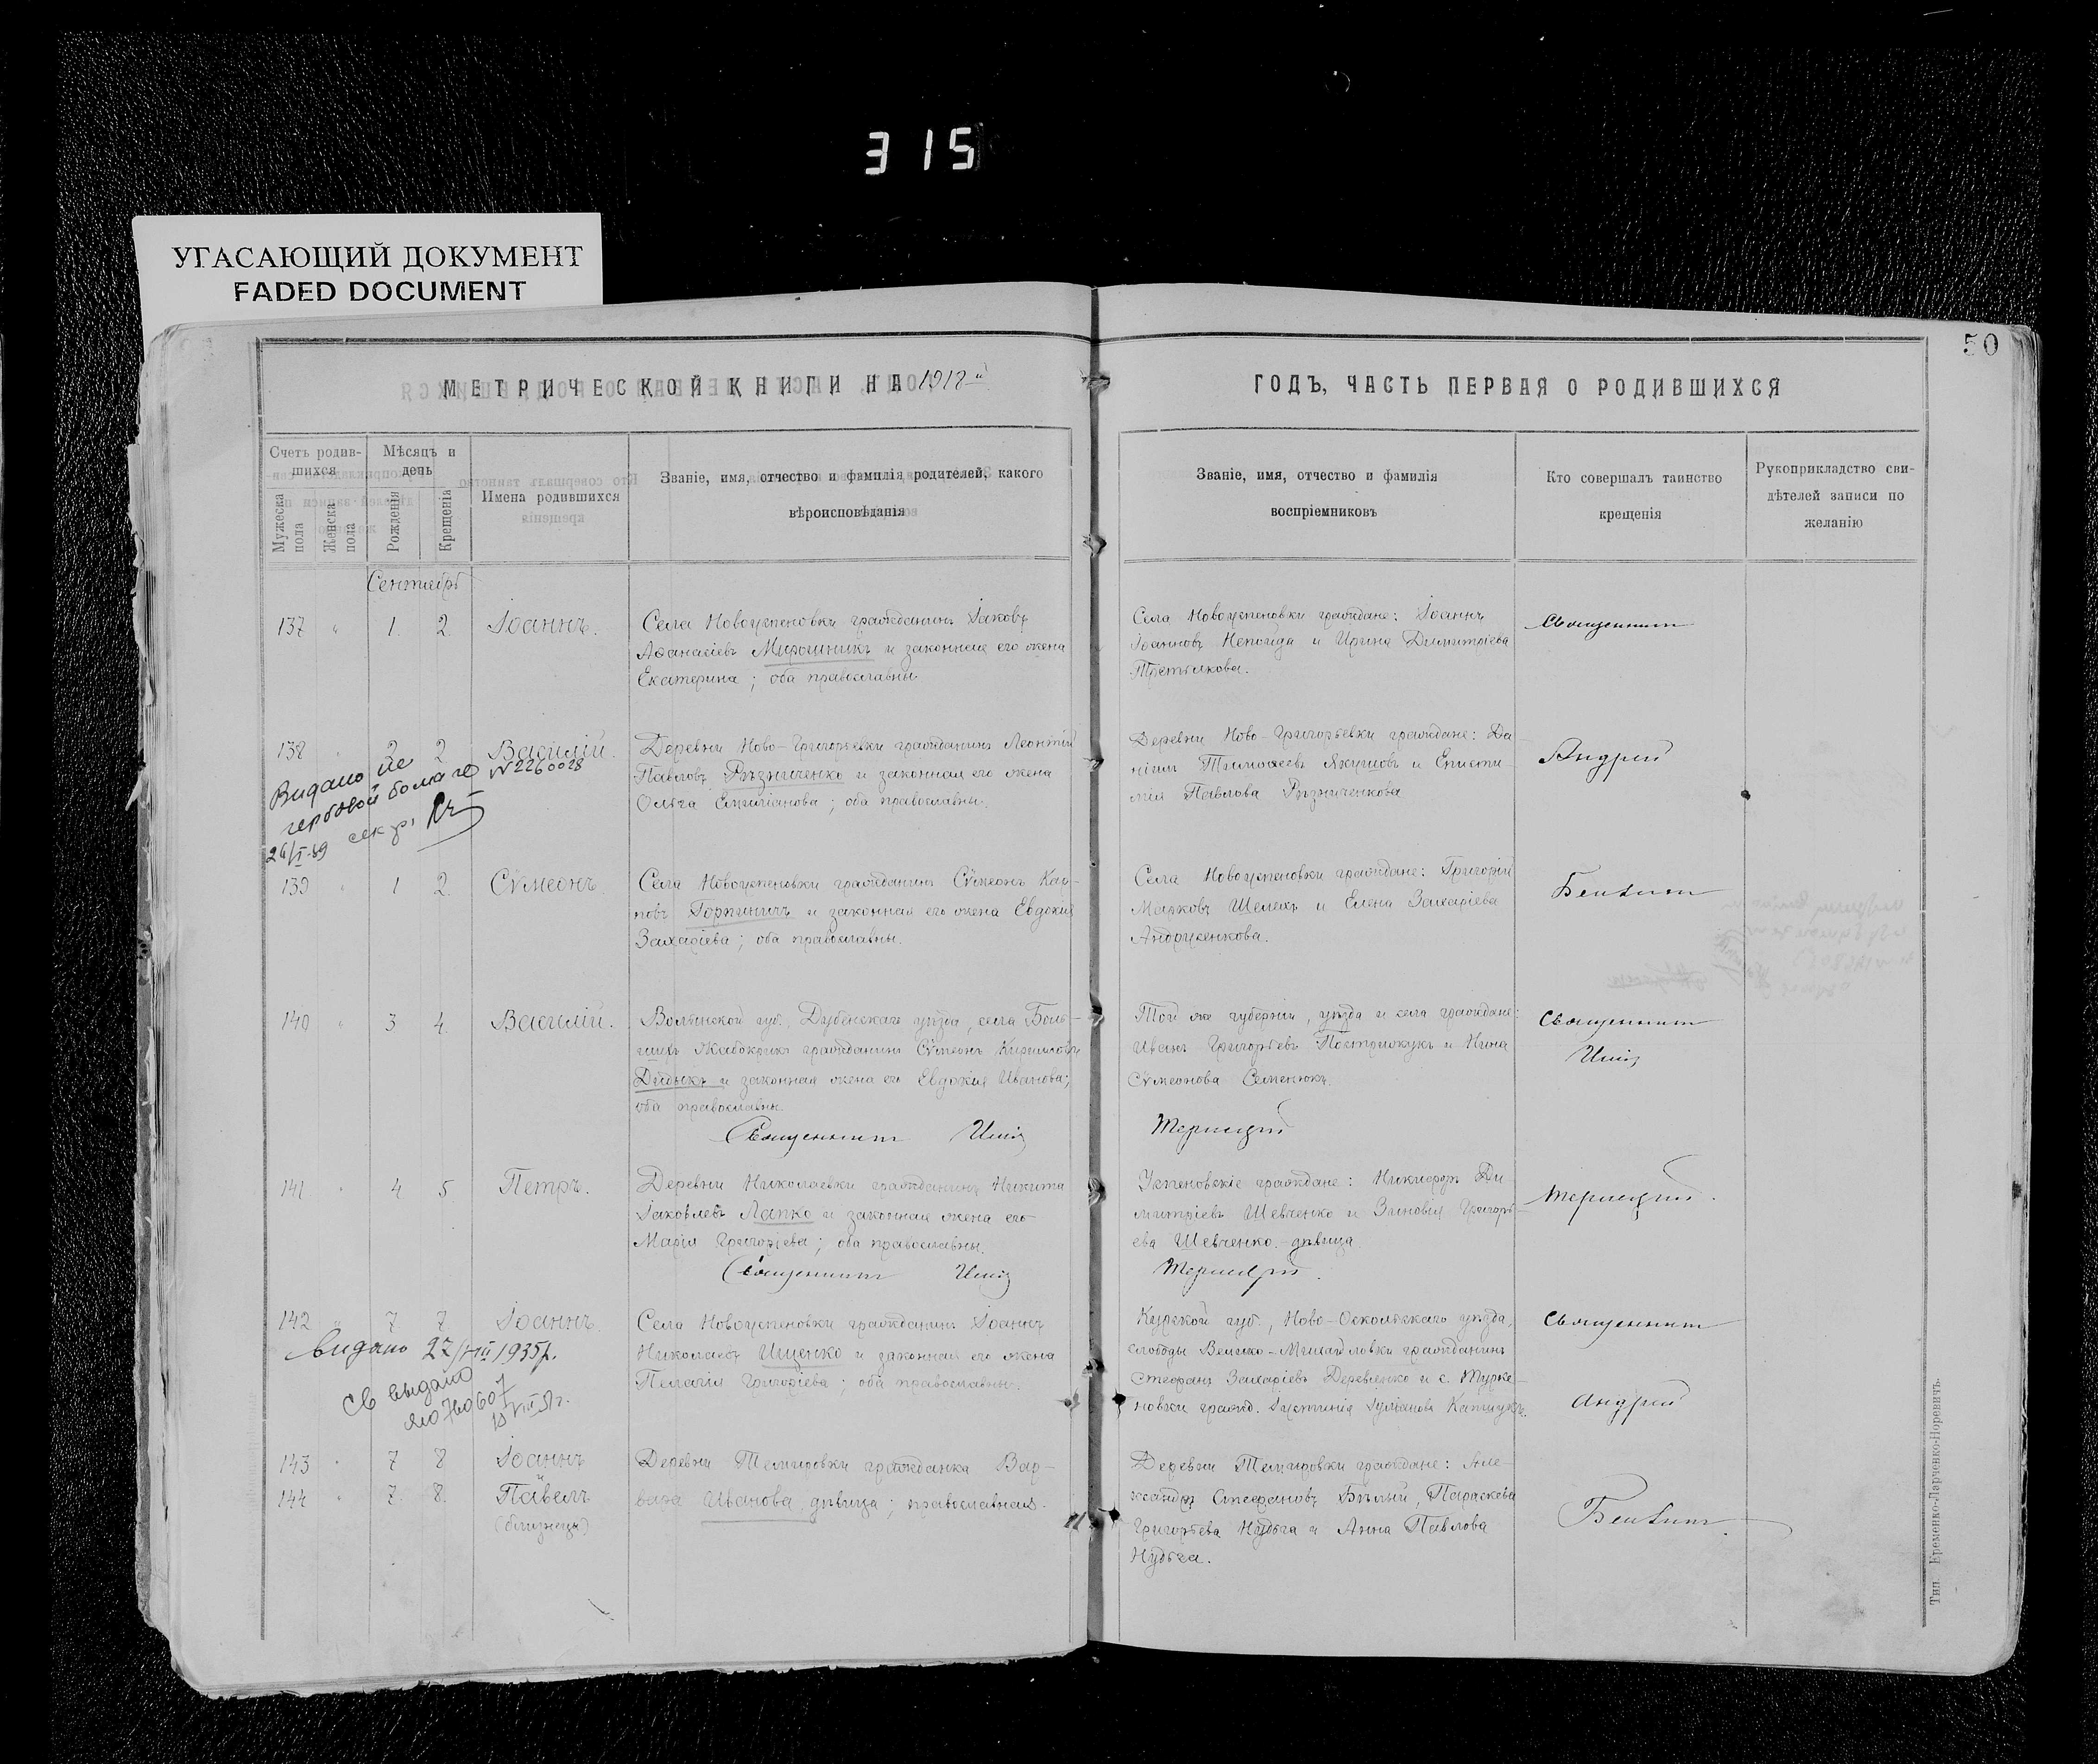 315
УГАСАЮЩИЙ ДОКУМЕНТ
FADED DOCUMENT
50
МЕТРИЧЕСКОЙ КНИГИ НА 1918 й
ГОДЪ, ЧАСТЬ ПЕРВАЯ О РОДИВШИХСЯ
Счетъ родив-
шихся
Мужеска пола
Женска пола
Мѣсяцъ и
день
Рожденія
Крещенія
Имена родившихся
Званіе, имя, отчество и фамилія родителей, какого
вѣроисповѣданія
Званіе, имя, отчество и фамилія
воспріемниковъ
Кто совершалъ таинство
крещенія
Рукоприкладство сви-
дѣтелей записи по
желанію
Сентябрь
137 " 1. 2. Іоаннъ.
Села Новоуспеновки гражданинъ Іаковъ
Аѳанасіевъ Мирошникъ и законная его жена
Екатерина; оба православны
Села Новоуспеновки граждане: Іоаннъ
Іоанновъ Непочида и Ирина Димитріева
Третьякова.
Священникъ
138 " 2 2 Василій.
Видано не
гербовой бомаге №2260028
секр.
26/I-89
Деревни Ново-Григорьевки гражданинъ Леонтій
Павловъ Рѣзниченко и законная его жена
Ольга Емиліанова; оба православны.
Деревни Ново-Григорьевки граждане: Да-
ніилъ Тимоѳеевъ Якушовъ и Еписти-
мія Павлова Рѣзниченкова
Андрей
139 " 1 2 Сѵмеонъ.
Села Новоуспеновки гражданинъ Сѵмеонъ Кар-
повъ Горпиничъ и законная его жена Евдокія
Захаріева; оба православны.
Села Новоуспеновки граждане: Григорій
Марковъ Шелехъ и Елена Захаріева
Андрусенкова.
140 " 3 4. Василій.
Волынской губ. Дубенскаго уѣзда, села Боль-
шихъ Жабокрикъ гражданинъ Сѵмеонъ Кирилловъ
и законная жена его Евдокія Иванова;
оба православны.
Священникъ
Той же губерніи, уѣзда и села граждане:
Иванъ Григорьевъ и Нина
Сѵмеонова Семенюкъ.
Священникъ
141 " 4 5. Петръ.
Деревни Николаевки гражданинъ Никита
Іаковлевъ Лапко и законная жена его
Марія Григоріева; оба православны.
Священникъ
Успеновскіе граждане: Никифоръ Ди-
митріевъ Шевченко и Зиновія Григорь-
ева Шевченко. дѣвица.
142 " 7 7. Іоаннъ.
Видано 27/VIII 1935р.
Св выдано
ЯЮ760607
Села Новоуспеновки гражданинъ Іоаннъ
Николаевъ Ищенко и законная его жена
Пелагія Григоріева; оба православны.
Курской губ., Ново-Оскольскаго уѣзда,
слободы Велико-Михайловки гражданинъ
Стефанъ Захаріевъ Деревянко и с. Турке-
новки гражд.
Священникъ
Андрей
143 " 7 8 Іоаннъ
144 " 7. 8. Павелъ
(близнецы)
Деревни Темировки гражданка Вар-
вара Иванова, дѣвица; православная.
Деревни Темировки граждане: Але-
ксандръ Стефановъ Бѣлый, Параскева
Григорьева Нудьга и Анна Павлова
Нудьга.
Тип. Еременко-Ларченко-Норевичъ.